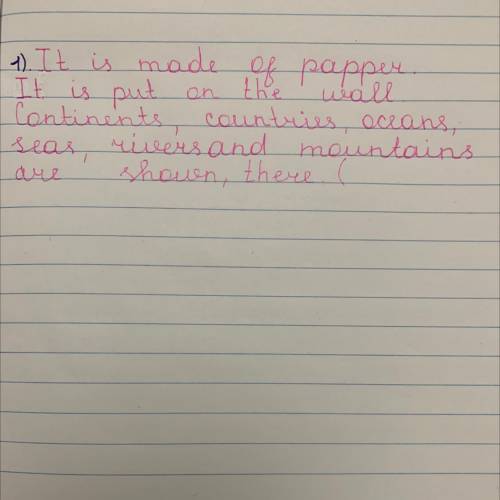 1). It is made of papper.
It is put on the wall
Continents, countries, oceans,
seas, rivers and mountains
are shown, there. (